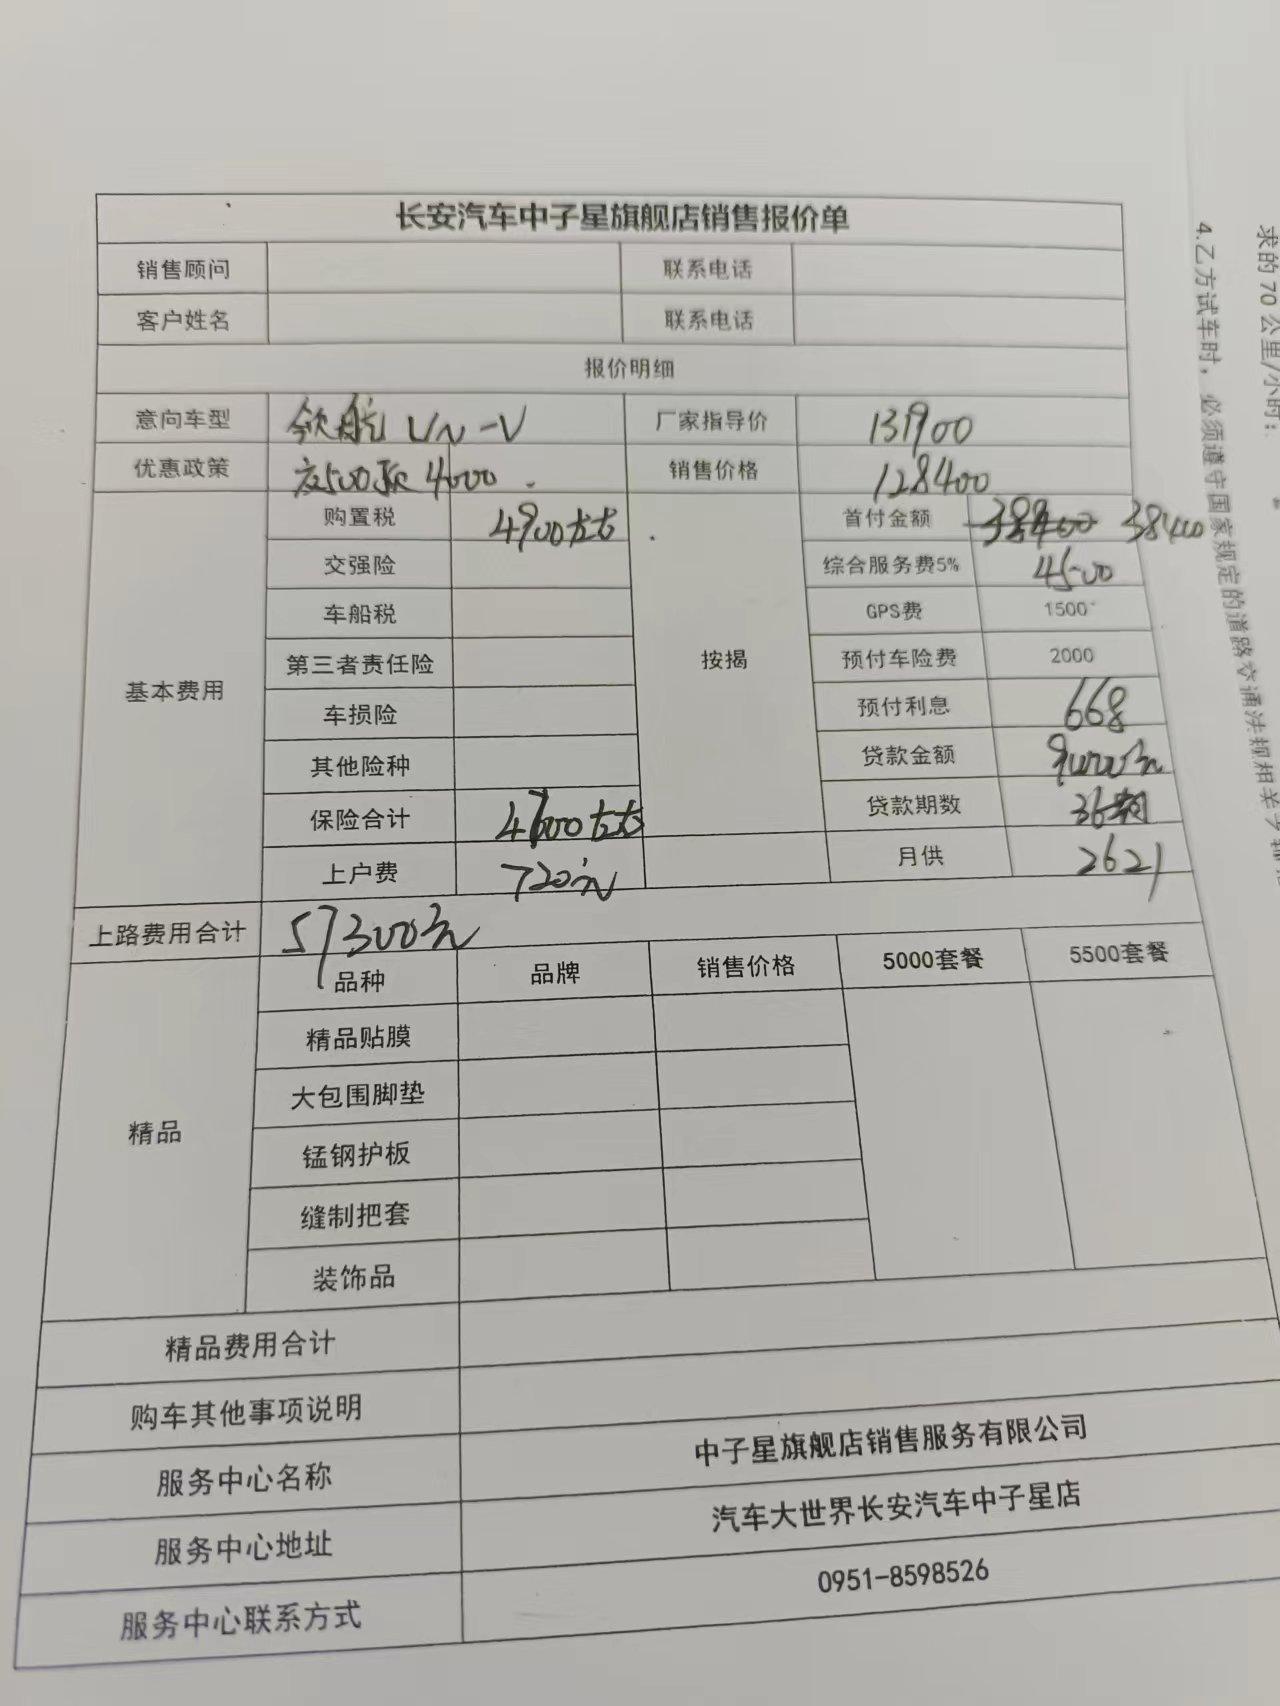 长安汽车中子星旗舰店销售报价单
销售顾问 联系电话
客户姓名 联系电话
报价明细
意向车型 欧航 UNI-V 厂家指导价 131900
优惠政策 4000 销售价格 128400
基本费用
购置税 4900左右
交强险
车船税
第三者责任险
车损险
其他险种
保险合计 4700左右
上户费 720元
按揭
首付金额 38400 38400
综合服务费5% 4500
GPS费 1500
预付车险费 2000
预付利息 668
贷款金额 90000元
贷款期数 36期
月供 2621
上路费用合计 57300元
精品
品种 品牌 销售价格 5000套餐 5500套餐
精品贴膜
大包围脚垫
锰钢护板
缝制把套
装饰品
精品费用合计
购车其他事项说明
服务中心名称 中子星旗舰店销售服务有限公司
服务中心地址 汽车大世界长安汽车中子星店
服务中心联系方式 0951-8598526
求的 70 公里/小时；
4.乙方试车时，必须遵守国家规定的道路交通法规相关